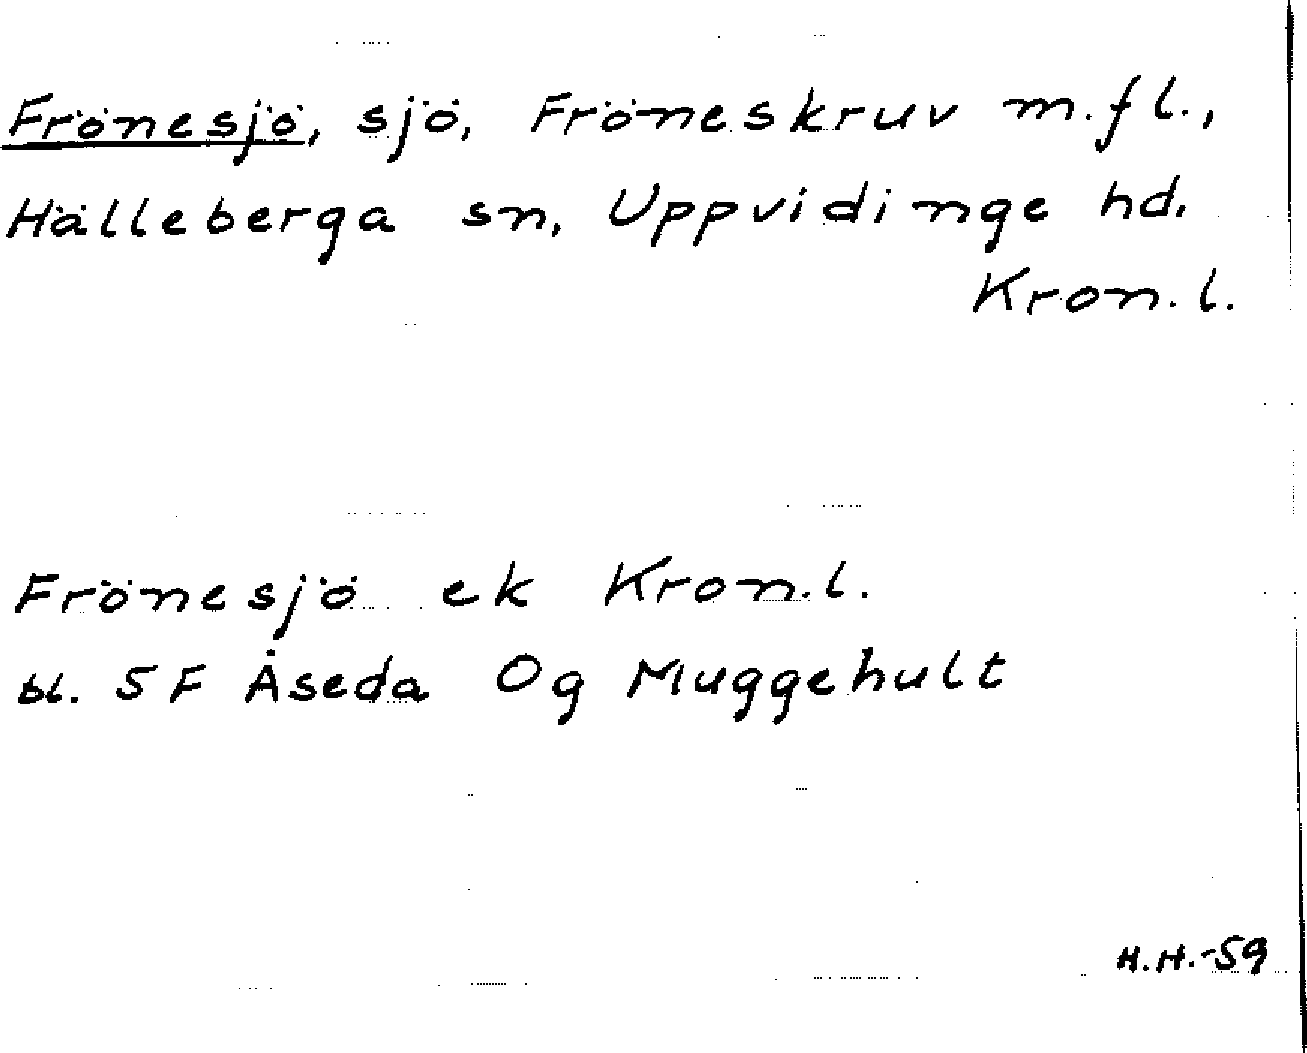 Frönesjö, sjö, Fröneskruv m.fl.,
Hälleberga sn, Uppvidinge hd.
Kron.l.
Frönesjö ek Kron.l.
bl. 5F Åseda Og Muggehult
H.H.-59